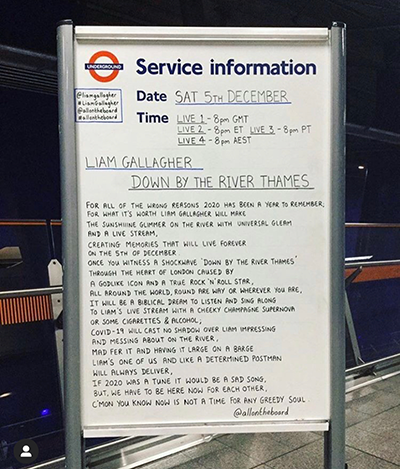 UNDERGROUND
Service information
@liamgallagher
#LiamGallagher
@allontheboard
#allontheboard
Date SAT 5TH DECEMBER
Time LIVE 1 - 8pm GMT
LIVE 2 - 8pm ET LIVE 3 - 8pm PT
LIVE 4 - 8pm AEST
LIAM GALLAGHER
DOWN BY THE RIVER THAMES
FOR ALL OF THE WRONG REASONS 2020 HAS BEEN A YEAR TO REMEMBER;
FOR WHAT IT'S WORTH LIAM GALLAGHER WILL MAKE
THE SUNSHIINE GLIMMER ON THE RIVER WITH UNIVERSAL GLEAM
AND A LIVE STREAM,
CREATING MEMORIES THAT WILL LIVE FOREVER
ON THE 5TH OF DECEMBER.
ONCE YOU WITNESS A SHOCKWAVE 'DOWN BY THE RIVER THAMES'
THROUGH THE HEART OF LONDON CAUSED BY
A GODLIKE ICON AND A TRUE ROCK 'N' ROLL STAR,
ALL AROUND THE WORLD, ROUND ARE WAY OR WHEREVER YOU ARE,
IT WILL BE A BIBLICAL DREAM TO LISTEN AND SING ALONG
TO LIAM'S LIVE STREAM WITH A CHEEKY CHAMPAGNE SUPERNOVA
OR SOME CIGARETTES & ALCOHOL;
COVID-19 WILL CAST NO SHADOW OVER LIAM IMPRESSING
AND MESSING ABOUT ON THE RIVER,
MAD FER IT AND HAVING IT LARGE ON A BARGE
LIAM'S ONE OF US AND LIKE A DETERMINED POSTMAN
WILL ALWAYS DELIVER,
IF 2020 WAS A TUNE IT WOULD BE A SAD SONG,
BUT, WE HAVE TO BE HERE NOW FOR EACH OTHER,
C'MON YOU KNOW NOW IS NOT A TIME FOR ANY GREEDY SOUL.
@allontheboard